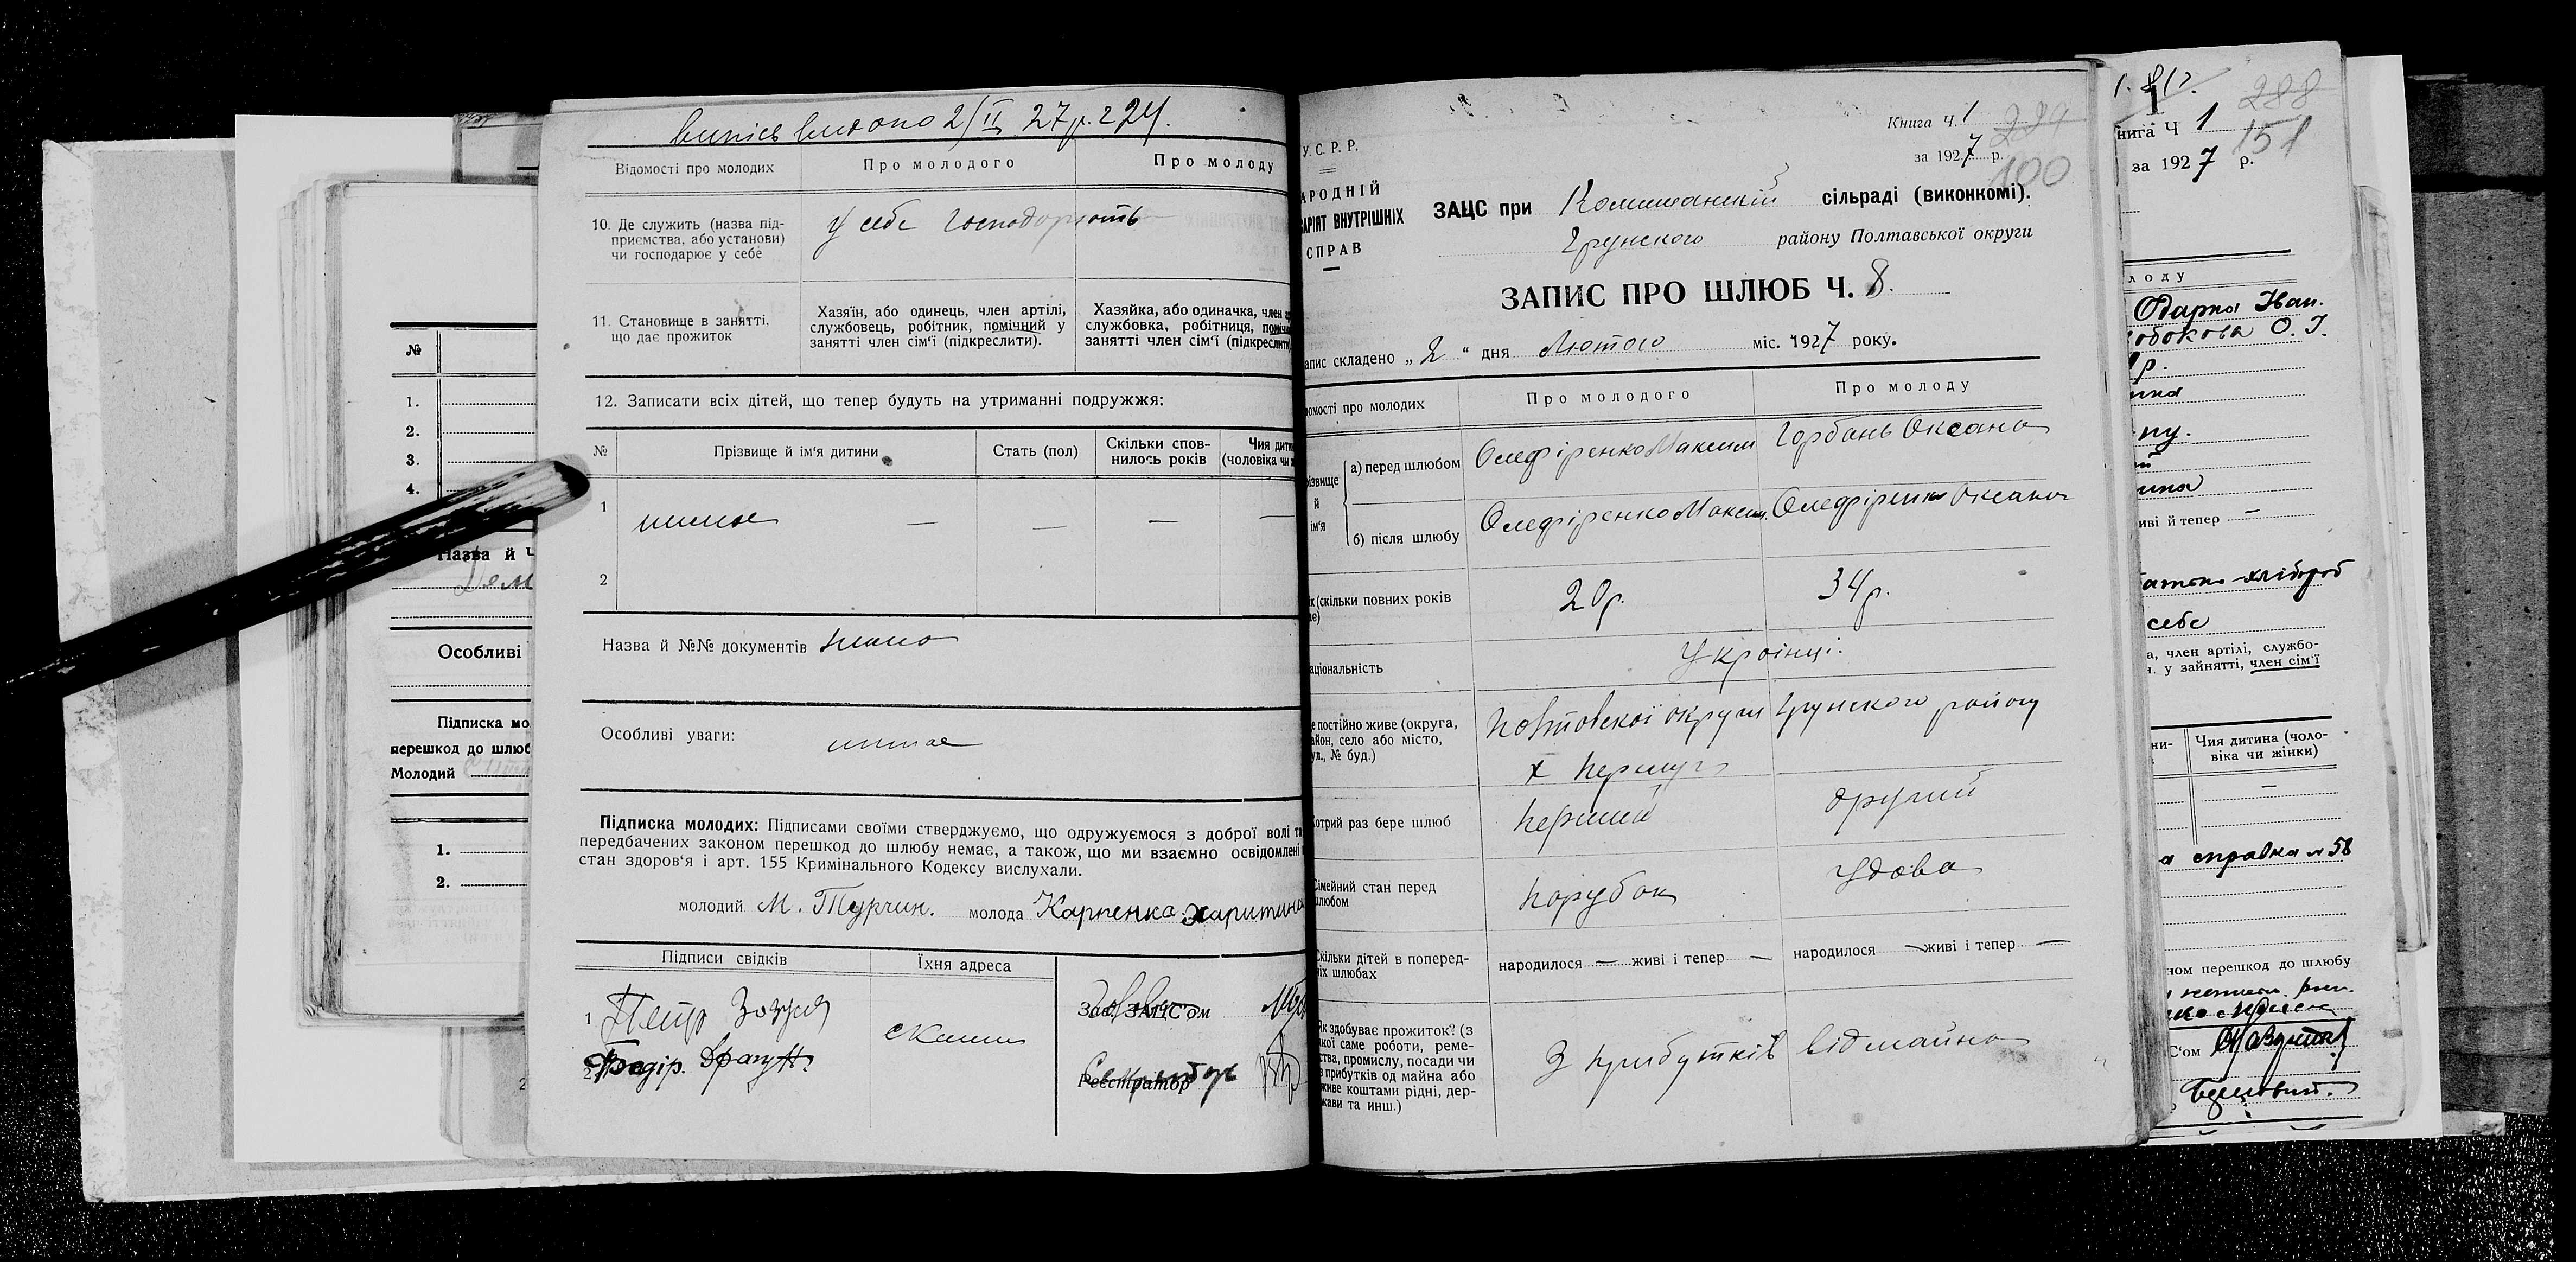 випись видано 2/II 27 р.
Відомості про молодих
Про молодого
Про молоду
10. Де служить (назва під-
приємства, або установи)
чи господарює у себе
у себе господарють
11. Становище в занятті,
що дає прожиток
Хазяїн, або одинець, член артілі,
службовець, робітник, помічний у
занятті член сім'ї (підкреслити).
Хазяйка, або одиначка, член
службовка, робітниця,
занятті член сім'ї (підкреслити)
12. Записати всіх дітей, що тепер будуть на утриманні подружжя:
№
Прізвище й ім'я дитини
Стать (пол)
Скільки спов-
нилось років
Чия дити
(чоловіка чи
1
немає — — — —
2
Назва й №№ документів немає
Особливі уваги: немає
Підписка молодих: Підписами своїми стверджуємо, що одружуємося з доброї волі та
передбачених законом перешкод до шлюбу немає, а також, що ми взаємно освідомлені
стан здоров'я і арт. 155 Кримінального Кодексу вислухали.
молодий М. Турчин. молода Карпенка Харитина
Підписи свідків
Їхня адреса
1 Петр Зозуля
2
Зав. ЗАГС'ом
Реєстратор
У.С.Р.Р.
АРОДНІЙ
АРІЯТ ВНУТРІШНІХ
СПРАВ
Книга Ч. 1
за 1927 р.
100
ЗАЦС при Комишанскій сільраді (виконкомі).
Грунского району Полтавської округи
ЗАПИС ПРО ШЛЮБ Ч. 8.
апис складено „2“ дня Лютого міс. 1927 року.
домості про молодих
Про молодого
Про молоду
різвище
й
ім'я
а) перед шлюбом
Олефіренко Максим
Горбань Оксана
б) після шлюбу
Олефіренко Максим.
Олефіренко Оксана
к (скільки повних років
20 р.
34 р.
аціональність
Українці.
е постійно живе (округа,
айон, село або місто,
ул., № буд.)
Полтовскої округи Грунского району
х
отрий раз бере шлюб
перший
другий
Сімейний стан перед
шлюбом
парубок
удова
Скільки дітей в поперед-
ніх шлюбах
народилося — живі і тепер —
народилося — живі і тепер —
Як здобуває прожиток? (з
якої саме роботи, реме-
ства, промислу, посади чи
з прибутків од майна або
живе коштами рідні, дер-
жави та инш.)
З прибутків від майна
№
1.
2.
3.
4.
Назва й Ч
Особливі
Підписка мо
перешкод до шлюб
Молодий
1.
2.
нига Ч 1
за 1927 р.
288
151
лоду
Одарка Іван.
О. І.
иві й тепер —
себе
а, член артілі, службо-
. у зайнятті, член сім'ї
Чия дитина (чоло-
віка чи жінки)
—
справка № 58
ном перешкод до шлюбу
С'ом